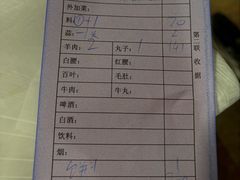 外加菜:
料①+1 10
蒜: 2
羊肉: 2 丸子: 1 141
白腰: 红腰:
百叶: 毛肚:
牛肉: 牛丸:
啤酒:
白酒:
饮料:
烟:
1
第二联 收据